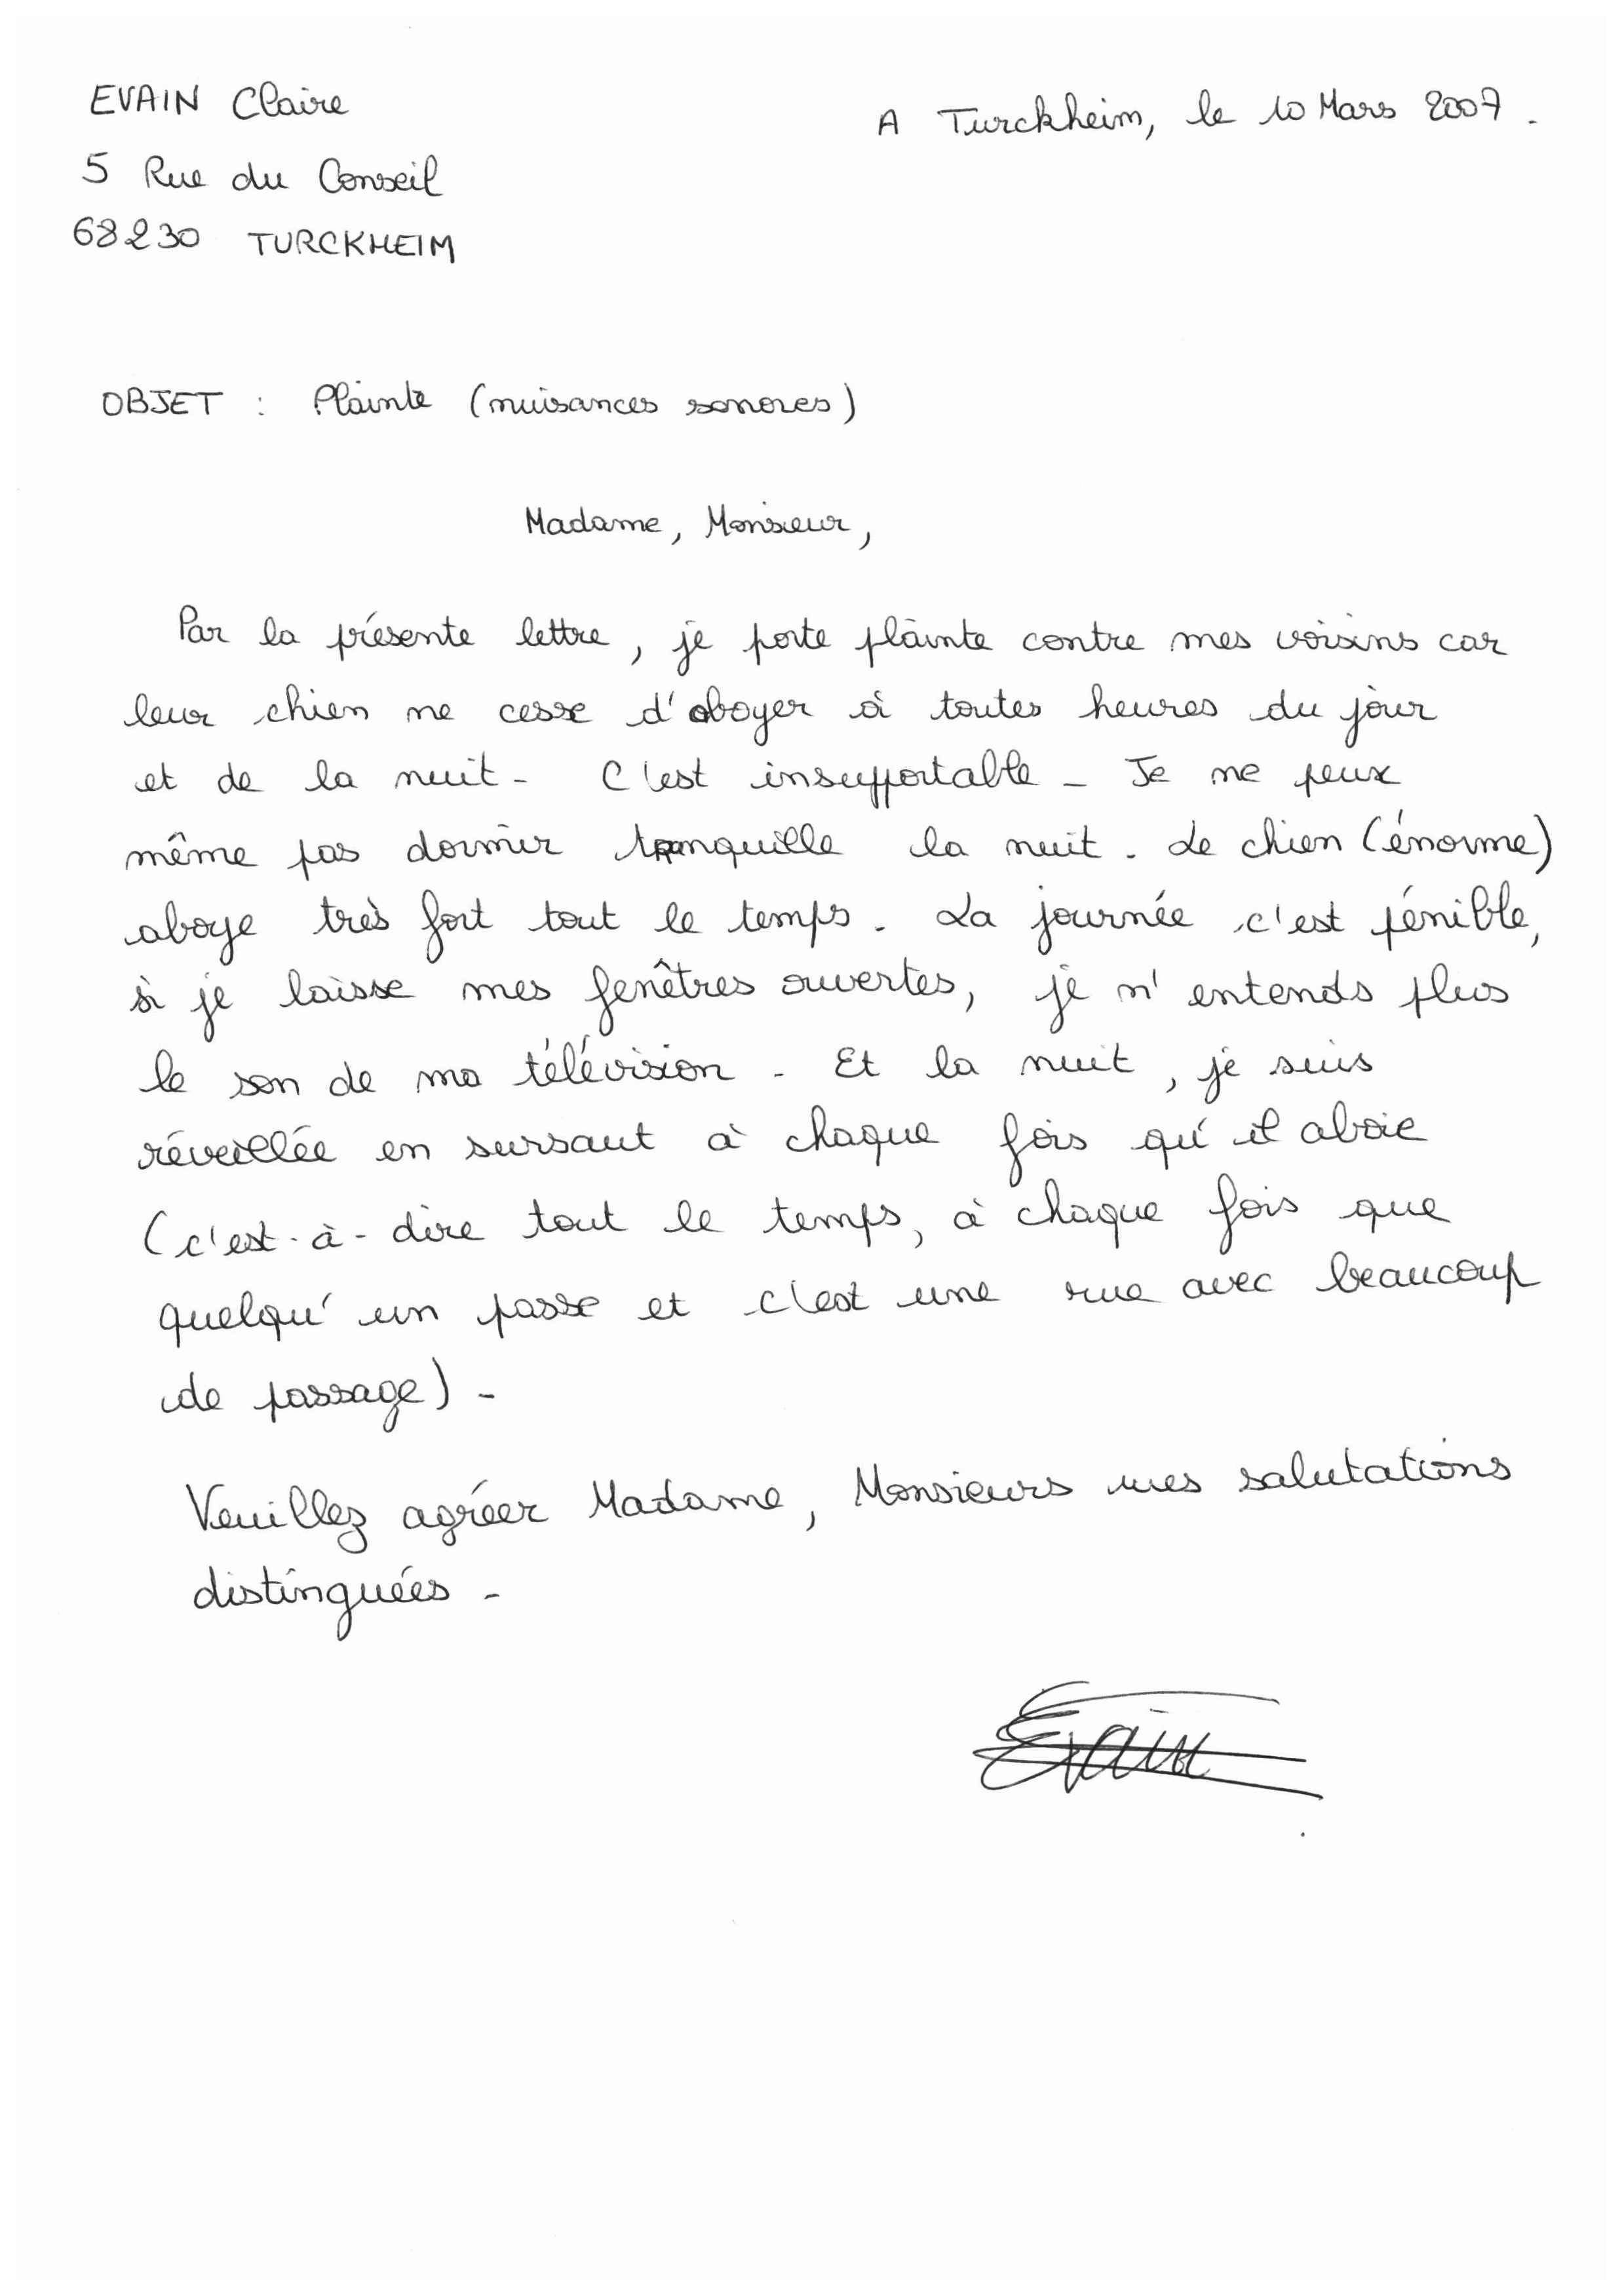 EVAIN Claire
A Turckheim, le 10 Mars 2007.
5 Rue du Conseil
68230 TURCKHEIM
OBJET : Plainte (nuisances sonores)
Madame, Monsieur,
Par la présente lettre, je porte plainte contre mes voisins car
leur chien ne cesse d'aboyer à toutes heures du jour
et de la nuit. C'est insupportable. Je ne peux
même pas dormir tranquille la nuit. Le chien (énorme)
aboye très fort tout le temps. La journée c'est pénible,
si je laisse mes fenêtres ouvertes, je n'entends plus
le son de ma télévision. Et la nuit, je suis
réveillée en sursaut à chaque fois qu'il aboie
(c'est-à-dire tout le temps, à chaque fois que
quelqu'un passe et c'est une rue avec beaucoup
de passage).
Veuillez agréer Madame, Monsieurs mes salutations
distinguées.
Evain